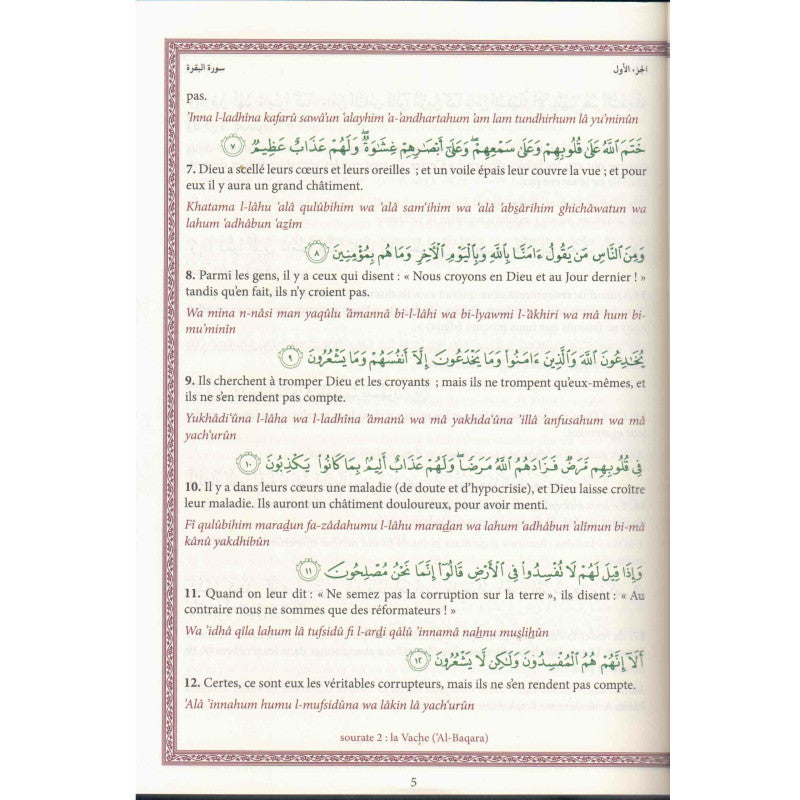 الجزء الأول
سورة البقرة
pas.
’Inna l-ladhîna kafarû sawâ’un ‘alayhim ’a-’andhartahum ’am lam tundhirhum lâ yu’minûn
خَتَمَ اللَّهُ عَلَىٰ قُلُوبِهِمْ وَعَلَىٰ سَمْعِهِمْ ۖ وَعَلَىٰ أَبْصَٰرِهِمْ غِشَٰوَةٌ ۖ وَلَهُمْ عَذَابٌ عَظِيمٌ ٧
7. Dieu a scellé leurs cœurs et leurs oreilles ; et un voile épais leur couvre la vue ; et pour
eux il y aura un grand châtiment.
Khatama l-lâhu ‘alâ qulûbihim wa ‘alâ sam‘ihim wa ‘alâ ’abṣârihim ghichâwatun wa
lahum ‘adhâbun ‘aẓîm
وَمِنَ النَّاسِ مَن يَقُولُ ءَامَنَّا بِاللَّهِ وَبِالْيَوْمِ الْآخِرِ وَمَا هُم بِمُؤْمِنِينَ ٨
8. Parmi les gens, il y a ceux qui disent : « Nous croyons en Dieu et au Jour dernier ! »
tandis qu’en fait, ils n’y croient pas.
Wa mina n-nâsi man yaqûlu ’âmannâ bi-l-lâhi wa bi-lyawmi l-’âkhiri wa mâ hum bi-
mu’minîn
يُخَٰدِعُونَ اللَّهَ وَالَّذِينَ ءَامَنُوا وَمَا يَخْدَعُونَ إِلَّا أَنفُسَهُمْ وَمَا يَشْعُرُونَ ٩
9. Ils cherchent à tromper Dieu et les croyants ; mais ils ne trompent qu’eux-mêmes, et
ils ne s’en rendent pas compte.
Yukhâdi‘ûna l-lâha wa l-ladhîna ’âmanû wa mâ yakhda‘ûna ’illâ ’anfusahum wa mâ
yach‘urûn
فِي قُلُوبِهِم مَّرَضٌ فَزَادَهُمُ اللَّهُ مَرَضًا ۖ وَلَهُمْ عَذَابٌ أَلِيمٌ بِمَا كَانُوا يَكْذِبُونَ ١٠
10. Il y a dans leurs cœurs une maladie (de doute et d’hypocrisie), et Dieu laisse croître
leur maladie. Ils auront un châtiment douloureux, pour avoir menti.
Fi qulûbihim maraḍun fa-zâdahumu l-lâhu maraḍan wa lahum ‘adhâbun ’alîmun bi-mâ
kânû yakdhibûn
وَإِذَا قِيلَ لَهُمْ لَا تُفْسِدُوا فِي الْأَرْضِ قَالُوا إِنَّمَا نَحْنُ مُصْلِحُونَ ١١
11. Quand on leur dit : « Ne semez pas la corruption sur la terre », ils disent : « Au
contraire nous ne sommes que des réformateurs ! »
Wa ’idhâ qîla lahum lâ tufsidû fi l-arḍi qâlû ’innamâ naḥnu muṣliḥûn
أَلَا إِنَّهُمْ هُمُ الْمُفْسِدُونَ وَلَٰكِن لَّا يَشْعُرُونَ ١٢
12. Certes, ce sont eux les véritables corrupteurs, mais ils ne s’en rendent pas compte.
’Alâ ’innahum humu l-mufsidûna wa lâkin lâ yach‘urûn
sourate 2 : la Vache (’Al-Baqara)
5